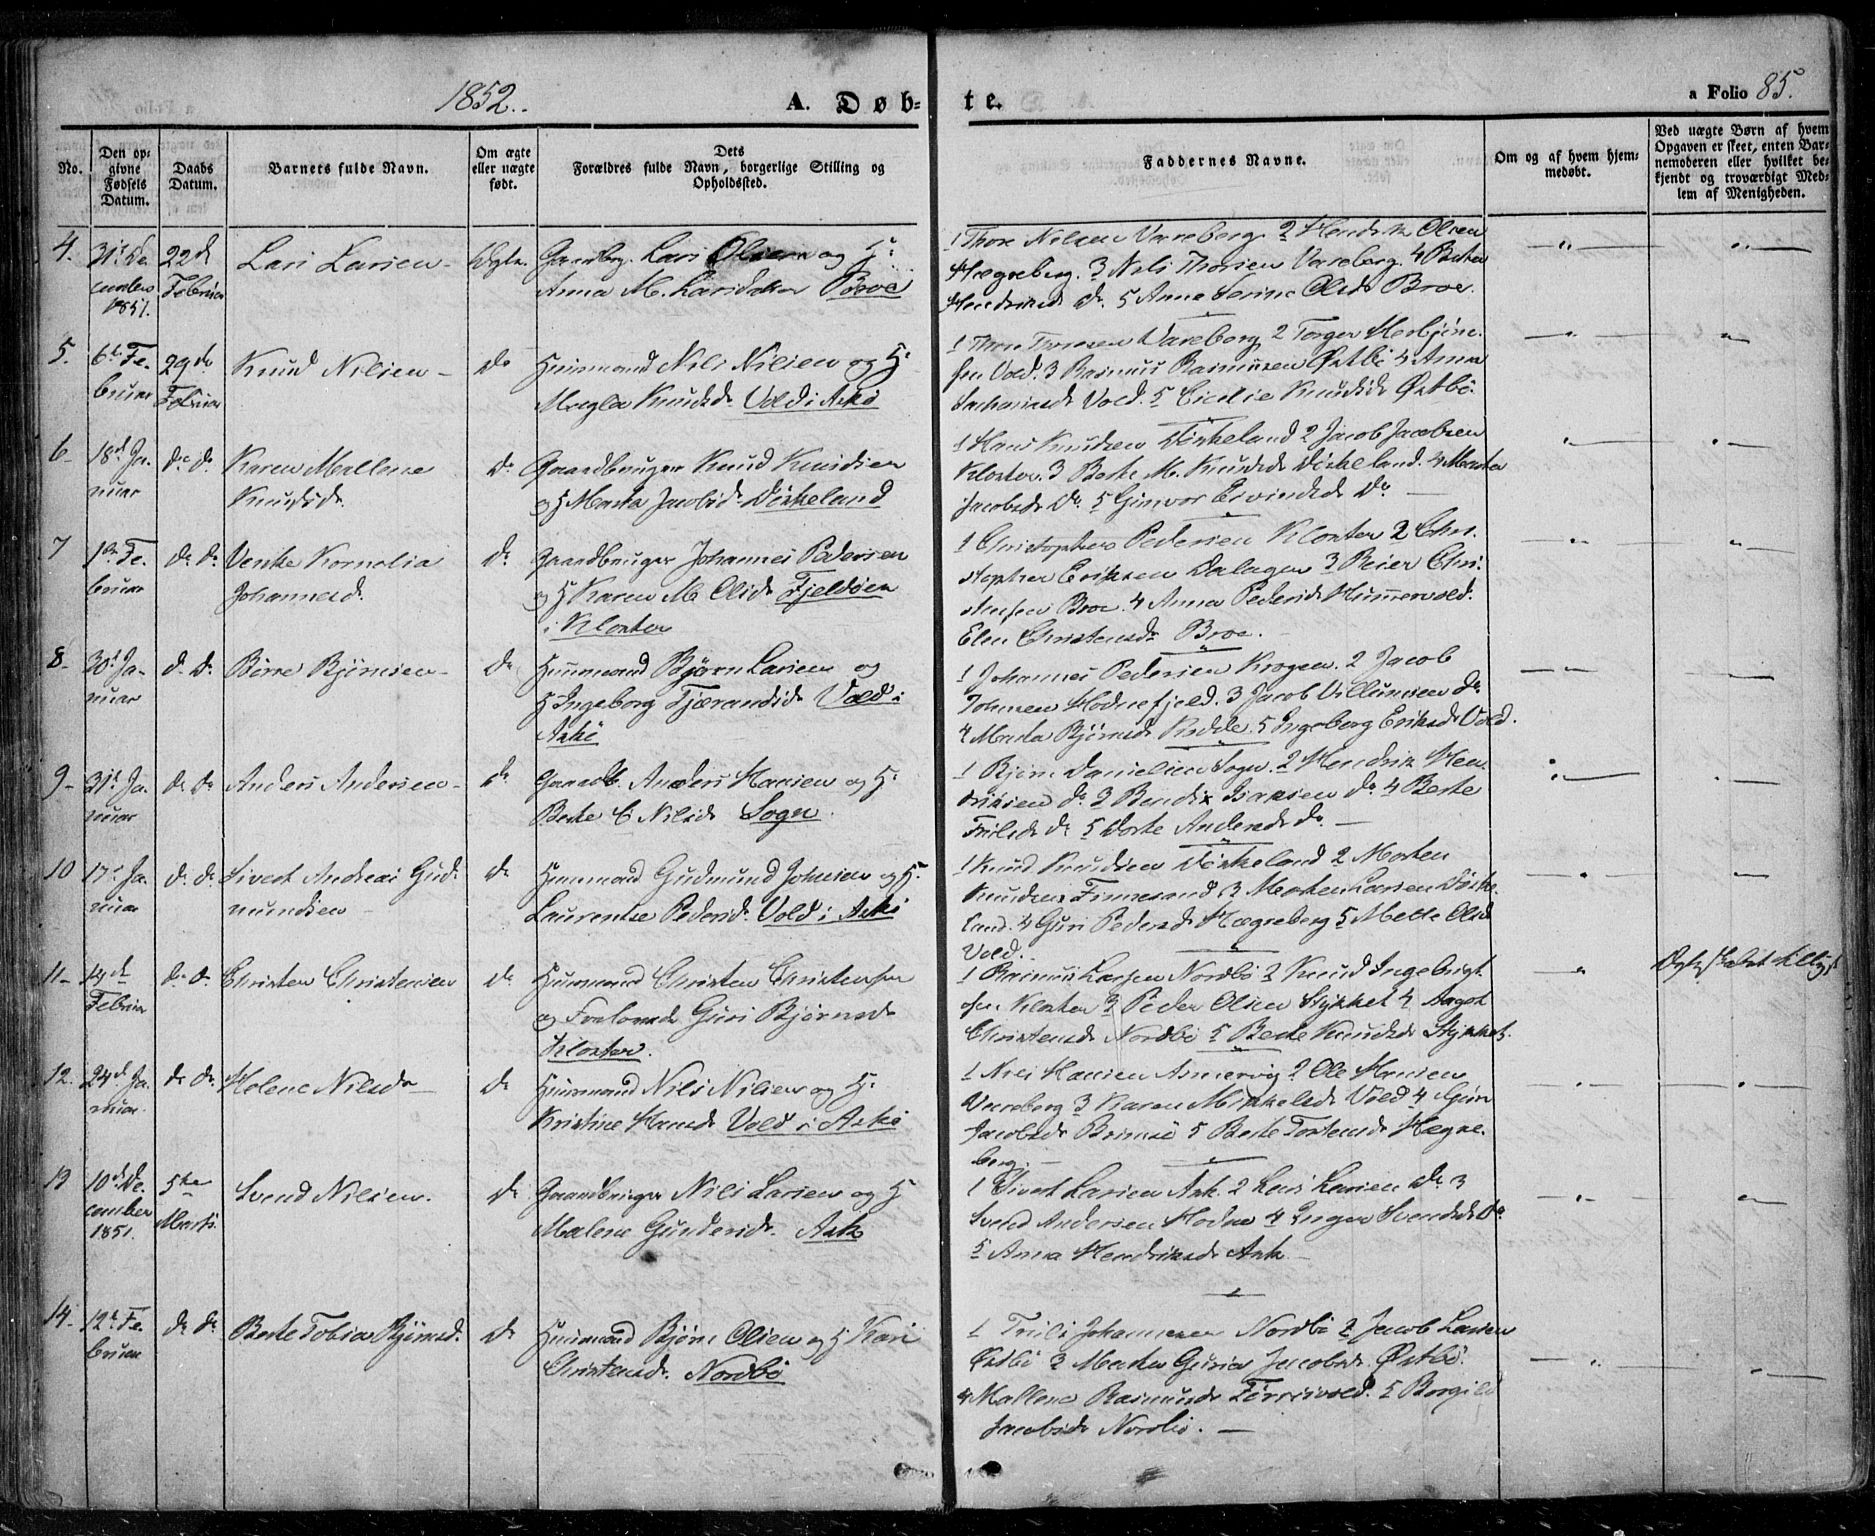 1852.
A. Døb-
te.
a Folio 85.
No.
Den op-
givne
Fødsels
Datum.
Daabs
Datum.
Barnets fulde Navn.
Om ægte
eller uægte
født.
Dets
Forældres fulde Navn, borgerlige Stilling og
Opholdssted.
Faddernes Navne.
Om og af hvem hjem-
medøbt.
Ved uægte Børn af hvem
Opgaven er skeet, enten Bar-
nemoderen eller hvilket be-
kjendt og troværdigt Med-
lem af Menigheden.
4.
31t De
cember
1851.
22d
Februar
Lars Larsen
Ægte
Gaardbr. Lars Olsen og H:
Anna M. Larsdatter Broe
1 Thore Nilsen Vareberg 2 Hendrik Olsen
Hægreberg. 3 Nils Thorsen Vareberg. 4 Berte
Hendriksd Do. 5 Anna Serine Olsd Broe.
5.
6te Fe-
bruar
29de
Februar
Knud Nilsen
Do
Huusmand Nils Nilsen og H:
Magla Knudsd. Vold i Askø
1 Thore Thoresen Vareberg 2 Torger Mosbjøn-
sen Vold. 3 Rasmus Rasmussen Østbø 4 Anna
Sachariasd Vold. 5 Cicilie Knudsd Østbø.
6
18d Ja-
nuar
do do
Karen Mallene
Knudsd.
Do
Gaardbruger Knud Knudsen
og H Marta Jacobsd. Dirkeland
1 Hans Knudsen Dirkeland 2 Jacob Jacobsen
Kloster. 3 Berte M. Knudsd Dirkeland. 4 Marta
Jacobsd Do. 5 Ginvor Eivindsd Do
7
1ste Fe-
bruar
do do
Venke Kornelia
Johannesd.
Do
Gaardbruger Johannes Pedersen
og H Karen M. Olsd. Fjeldøen
i Kloster
1 Christopher Pedersen Kloster 2 Chri-
stopher Eriksen Dalagen 3 Reier Chri-
stensen Broe. 4 Anna Pedersd Hummervold.
Elen Christensd Broe.
8
30d Ja-
nuar
do Do
Børre Bjørnsen
Do
Huusmand Bjørn Larsen og
H Ingeborg Tjærandsd. Vold i
Askø
1 Johannes Pedersen Krogen. 2 Jacob
Johnsen Hodnefjeld. 3 Jacob Villumsen Do
4 Marta Bjørnsd Rødde. 5 Ingeborg Eriksd Vold.
9
31t Ja-
nuar
do do
Anders Andersen
do
Gaardb. Anders Hansen og H:
Berte C Nilsd. Sogn.
1 Bjørn Danielsen Sogn. 2 Hendrik Hen-
driksen do 3 Bendix Isaksen do 4 Berte
Trulsd do 5 Dorte Andersd do.
10
17d Ja-
nuar
do do
Sivert Andreas Gud-
mundsen
do
Huusmand Gudmund Johnsen og H:
Laurentse Pedersd. Vold i Askø
1 Knud Knudsen Dirkeland 2 Morten
Knudsen Finnesand 3 Morten Larsen Dirke-
land. 4 Guri Pedersd Hægreberg 5 Mette Olsd
Vold.
11
14d
Februar
do do
Christen Christensen
do
Huusmand Christen Christensen
og Forlovede Guri Bjørnsd
Kloster.
1 Rasmus Larsen Nordbø 2 Knud Ingebrigt-
sen Kloster 3 Peder Olsen Stykket 4 Aagot
Christensd Nordbø 5 Berte Knudsd Stykket.
12.
24d Ja-
nuar
do do
Helene Nilsd
do
Huusmand Nils Nilsen og H:
Kristine Hansd Vold i Askø
1 Nils Hansen Asmervig 2 Ole Hansen
Vareberg 3 Karen Mikkelsd Vold 4 Guri
Jacobsd Brimsø 5 Berte Torstensd Hægre-
berg.
13
10d De-
cember
1851.
5te
Marts
Svend Nilsen.
do
Gaardbruger Nils Larsen og H
Malene Gundersd. Ask
1 Sivert Larsen Ask. 2 Lars Larsen Do 3
Svend Andersen Hodne 4 Inger Svendsd Do
5 Anna Hendriksd Ask
14
12te Fe-
bruar
do do
Berte Tobia Bjørnsd.
do
Huusmand Bjørn Olsen og H Kari
Christensd. Nordbø
1 Truls Johannesen Nordbø 2 Jacob Larsen
Østbø 3 Marta Guria Jacobsd Østbø.
4 Mallene Rasmusd Tørrisvold. 5 Borgild
Jacobsd Nordbø.